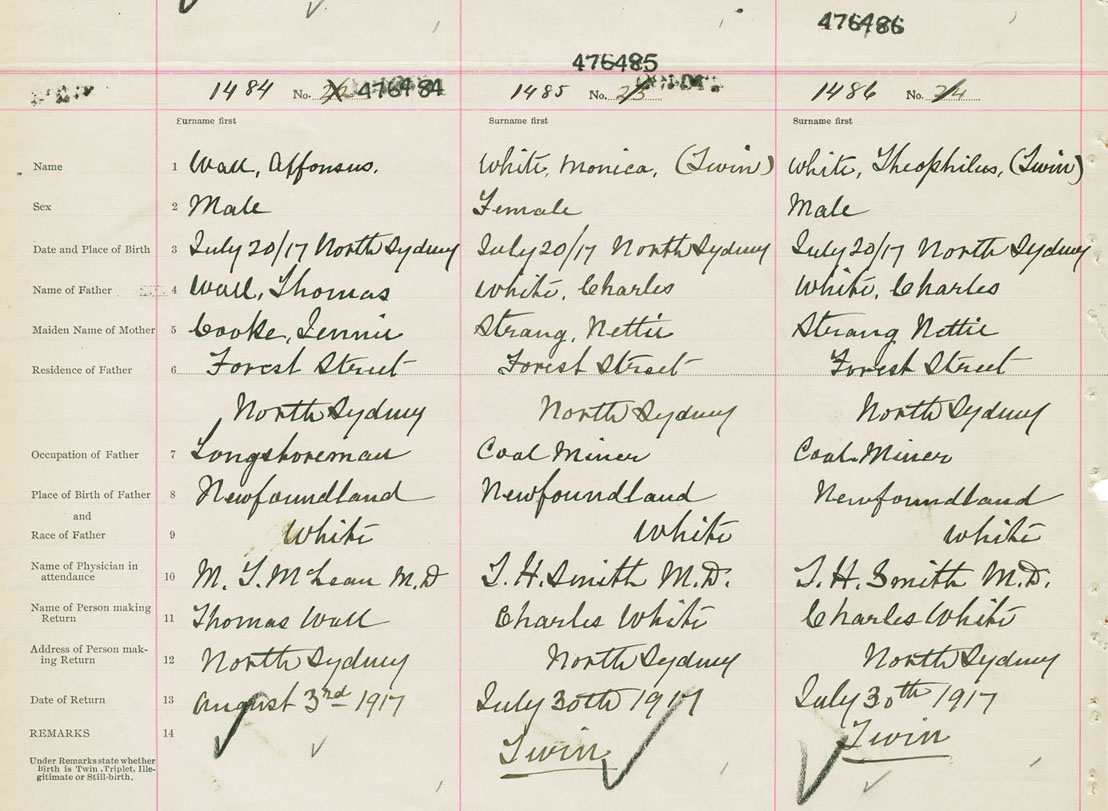 476486
476485
1484 No. 22 476484 1485 No. 23 1486 No. 24
Surname first Surname first Surname first
Name 1 Wall, Alfonsus. White, Monica, (Twin) White, Theophilus, (Twin)
Sex 2 Male Female Male
Date and Place of Birth 3 July 20/17 North Sydney July 20/17 North Sydney July 20/17 North Sydney
Name of Father 4 Wall, Thomas White, Charles White, Charles
Maiden Name of Mother 5 Cooke, Jennie Strang, Nettie Strang Nettie
Residence of Father 6 Forest Street Forest Street Forest Street
North Sydney North Sydney North Sydney
Occupation of Father 7 Longshoreman Coal Miner Coal Miner
Place of Birth of Father 8 Newfoundland Newfoundland Newfoundland
and
Race of Father 9 White White White
Name of Physician in
attendance 10 M. T. McLean M.D T. H. Smith M.D. T. H. Smith M.D.
Name of Person making
Return 11 Thomas Wall Charles White Charles White
Address of Person mak-
ing Return 12 North Sydney North Sydney North Sydney
Date of Return 13 August 3rd 1917 July 30th 1917 July 30th 1917
REMARKS 14 Twin Twin
Under Remarks state whether
Birth is Twin, Triplet, Ille-
gitimate or Still-birth.